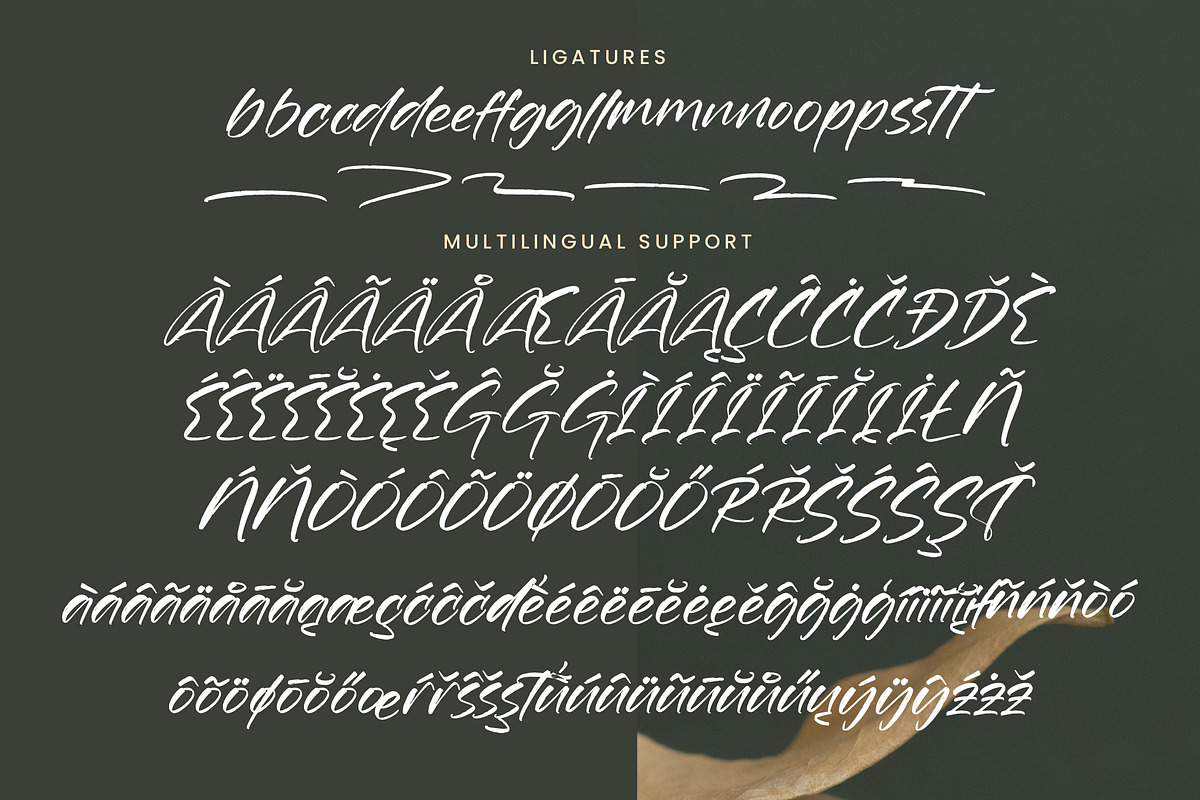 LIGATURES
bbccddeeffggllmmnnooppssTT
MULTILINGUAL SUPPORT
ÀÁÂÃÄÅÆĀĂĄÇĈĊČĐĎÈ
ÉÊËĒĔĖĘĚĜĞĠÌÍÎÏĨĪĬĮİŁÑ
ŃŇÒÓÔÕÖØŌŎŐŔŘŠŚŜŞŤ
àáâãäåāăąæçćĉċčďèéêëēĕėęěĝğġģìíîïĩīĭįłñńňòó
ôõöøōŏőœŕřśŝšşťùúûüũūŭůűųýÿŷźżž